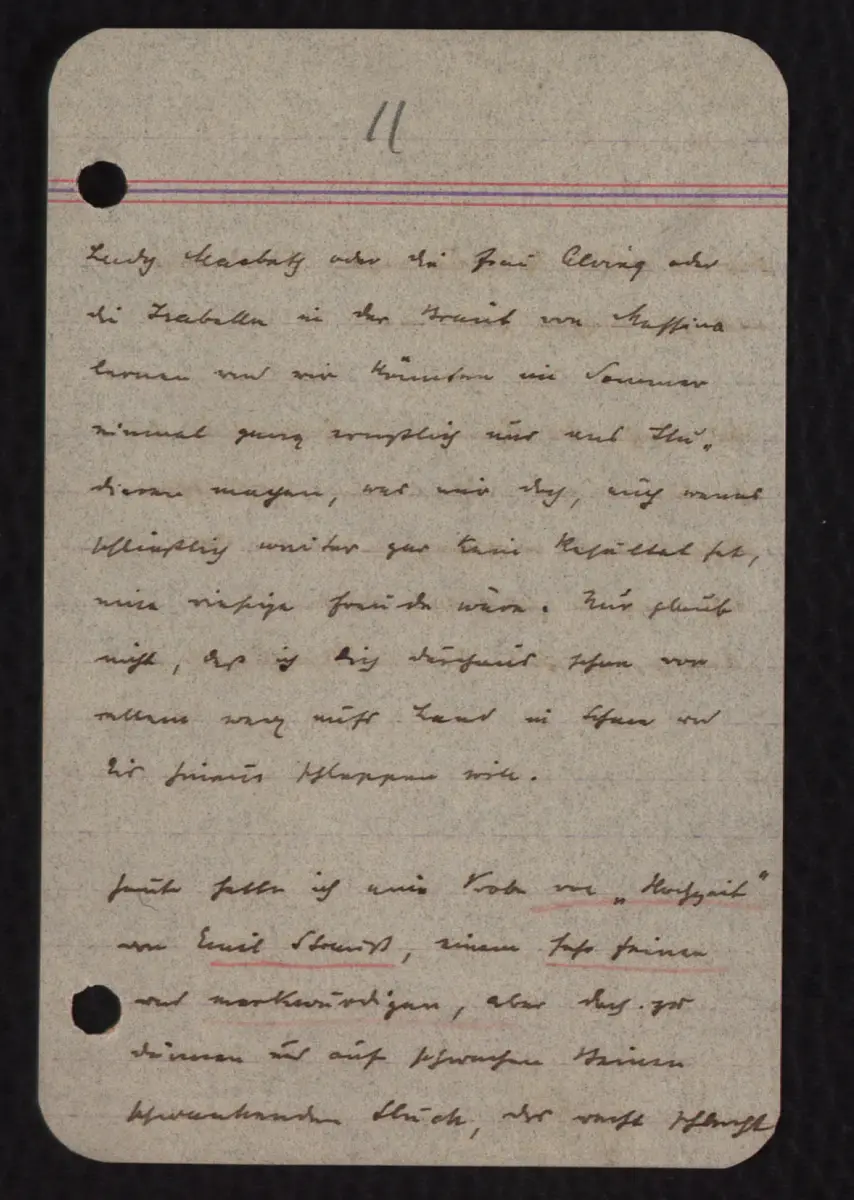 11
Lady Macbeth oder die Frau Alving oder
die Isabella in der Braut von Messina
lernen und wir könnten im Sommer
einmal ganz ernstlich uns ans Stu-
dieren machen, was mir doch, auch wenns
schließlich weiter gar kein Resultat hat,
eine riesige Freude wäre. Nur glaub
nicht, daß ich Dich durchaus schon vor
allem weg aufs Land in Schnee und
Eis hinaus schleppen will.
Heute hatte ich eine Probe von „Hochzeit"
von Emil Strauß, einem sehr feinen
und merkwürdigen, aber doch zu
dünnen und auf schwachen Beinen
schwankenden Stück, das recht schlecht